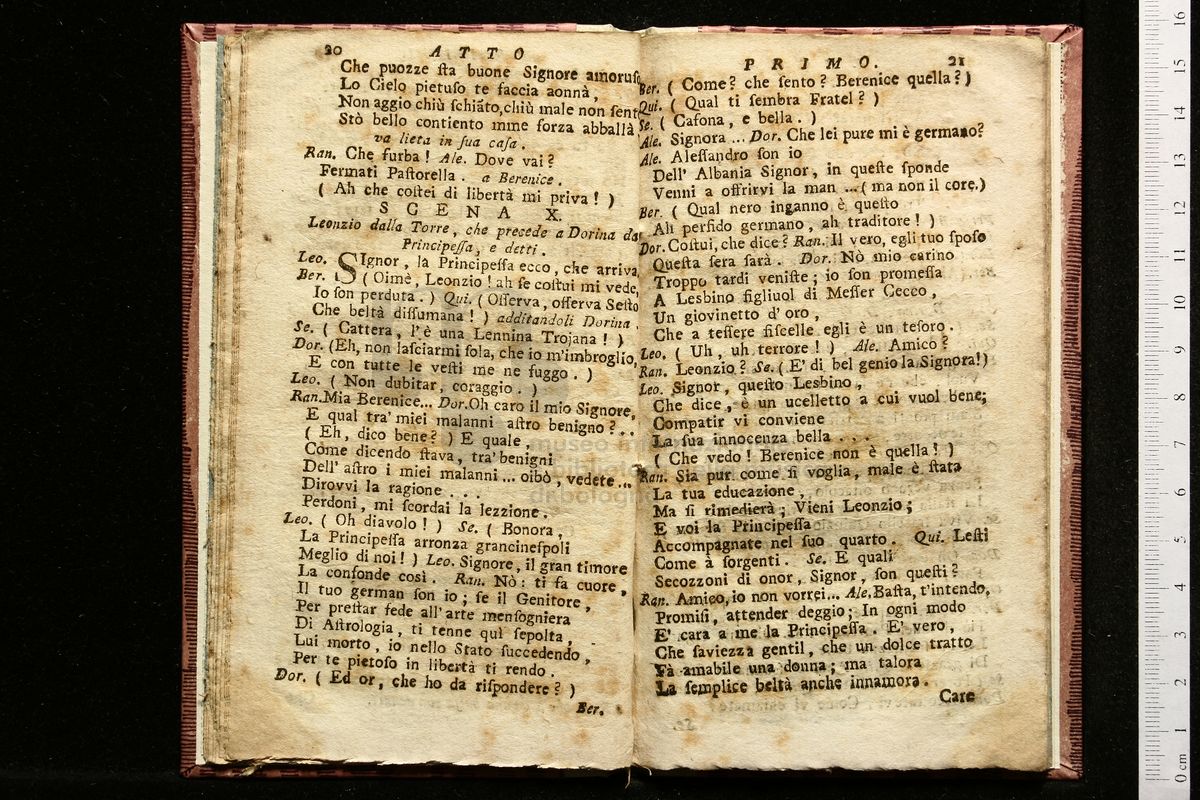 20 ATTO
Che puozze ſta buone Signore amoruſo
Lo Cielo pietuſo te faccia aonnà,
Non aggio chiù ſchiãto, chiù male non ſent
Stò bello contiento mme forza abballà
va lieta in ſua caſa.
Ran. Che furba! Ale. Dove vai?
Fermati Paſtorella. a Berenice.
( Ah che coſtei di libertà mi priva! )
SCENA X.
Leonzio dalla Torre, che precede a Dorina da
Principeſſa, e detti.
Leo. SIgnor, la Principeſſa ecco, che arriva,
Ber. ( Oimè, Leonzio! ah ſe coſtui mi vede,
Io ſon perduta. ) Qui. ( Oſſerva, oſſerva Seſto
Che beltà diſſumana! ) additandoli Dorina.
Se. ( Cattera, l'è una Lennina Trojana! )
Dor. (Eh, non laſciarmi ſola, che io m'imbroglio,
E con tutte le veſti me ne fuggo. )
Leo. ( Non dubitar, coraggio. )
Ran. Mia Berenice... Dor. Oh caro il mio Signore,
E qual tra' miei malanni aſtro benigno?...
( Eh, dico bene? ) E quale,
Come dicendo ſtava, tra' benigni
Dell' aſtro i miei malanni... oibò, vedete...
Dirovvi la ragione...
Perdoni, mi ſcordai la lezzione.
Leo. ( Oh diavolo! ) Se. ( Bonora,
La Principeſſa arronza grancineſpoli
Meglio di noi! ) Leo. Signore, il gran timore
La confonde così. Ran. Nò: ti fa cuore,
Il tuo german ſon io; ſe il Genitore,
Per preſtar fede all' arte menſogniera
Di Aſtrologia, ti tenne quì ſepolta,
Lui morto, io nello Stato ſuccedendo,
Per te pietoſo in libertà ti rendo.
Dor. ( Ed or, che ho da riſpondere? )
Ber.
PRIMO. 21
Ber. ( Come? che ſento? Berenice quella? )
Qui. ( Qual ti ſembra Fratel? )
Se. ( Cafona, e bella. )
Ale. Signora... Dor. Che lei pure mi è germano?
Ale. Aleſſandro ſon io
Dell' Albania Signor, in queſte ſponde
Venni a offrirvi la man... ( ma non il core.)
Ber. ( Qual nero inganno è queſto
Ah perfido germano, ah traditore! )
Dor. Coſtui, che dice? Ran. Il vero, egli tuo ſpoſo
Queſta ſera ſarà. Dor. Nò mio carino
Troppo tardi veniſte; io ſon promeſſa
A Lesbino figliuol di Meſſer Cecco,
Un giovinetto d' oro,
Che a teſſere fiſcelle egli è un teſoro.
Leo. ( Uh, uh terrore! ) Ale. Amico?
Ran. Leonzio? Se. ( E' di bel genio la Signora!)
Leo. Signor, queſto Lesbino,
Che dice, è un ucelletto a cui vuol bene;
Compatir vi conviene
La ſua innocenza bella...
( Che vedo! Berenice non è quella! )
Ran. Sia pur come ſi voglia, male è ſtata
La tua educazione,
Ma ſi rimedierà; Vieni Leonzio;
E voi la Principeſſa
Accompagnate nel ſuo quarto. Qui. Leſti
Come à ſorgenti. Se. E quali
Secozzoni di onor, Signor, ſon queſti?
Ran. Amico, io non vorrei... Ale. Baſta, t'intendo,
Promiſi, attender deggio; In ogni modo
E' cara a me la Principeſſa. E' vero,
Che ſaviezza gentil, che un dolce tratto
Fà amabile una donna; ma talora
La ſemplice beltà anche innamora.
Care